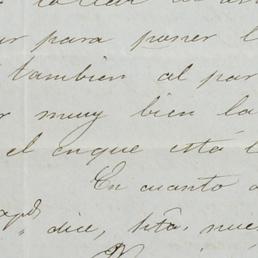 para poner l
tambien al par
muy bien la
el en que está l
En cuanto a
dice, hta. nues